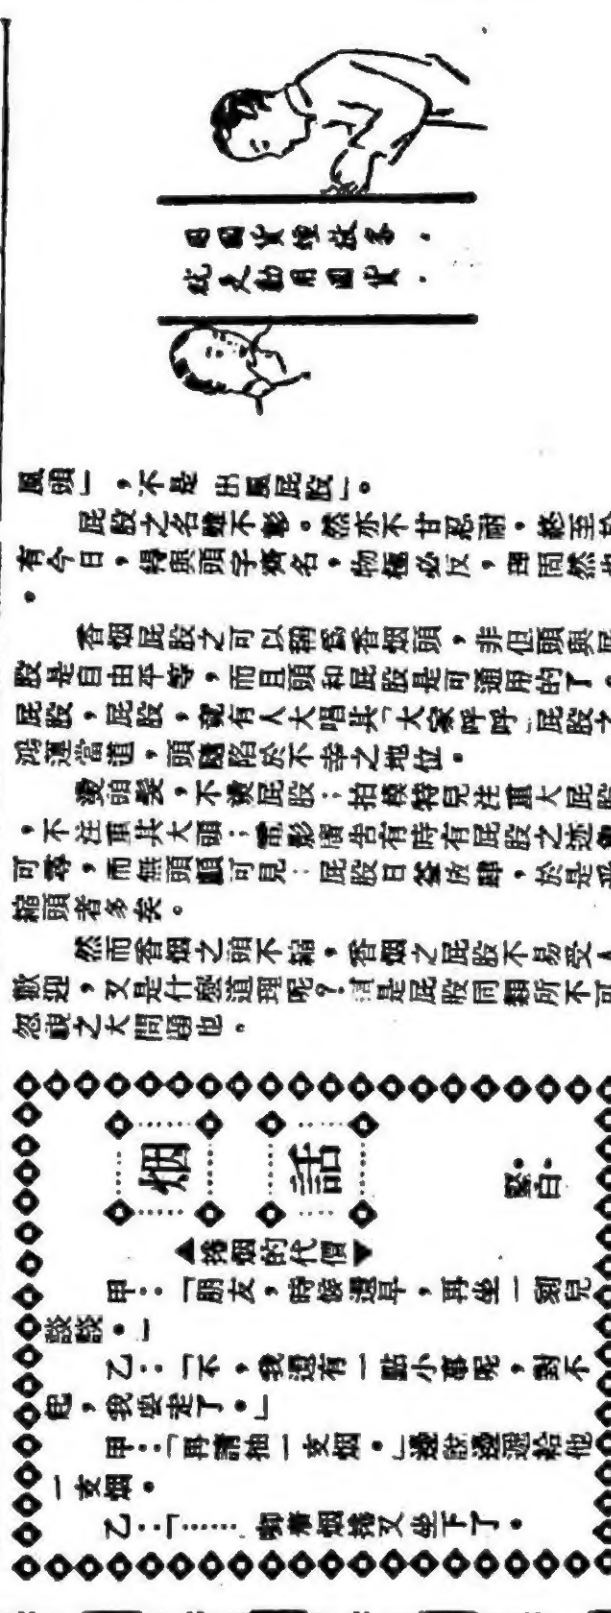 國貨煙
用國貨，
風頭」，不是 出風屁股」。
屁股之名雖不彰。然亦不甘忍耐，終至於
有今日，得與頭字齊名，物極必反，理固然也
。
香烟屁股之可以稱爲香烟頭，非但頭與屁
股是自由平等，而且頭和屁股是可通用的了。
屁股，屁股，竟有人大唱其「大家呼呼 屁股之
鴻運當道，頭隨陷於不幸之地位。
燙頭髮，不燙屁股；拍模特兒注重大屁股
，不注重其大頭；電影廣告有時有屁股之迹象
可尋，而無頭顱可見；屁股日益放肆，於是乎
縮頭者多矣。
然而香烟之頭不縮，香烟之屁股不易受人
歡迎，又是什麽道理呢？這是屁股同類所不可
忽視之大問題也。
烟話
堅白
▲捲烟的代價▼
甲：「朋友，時候還早，再坐一刻兒
談談。」
乙：「不，我還有一點小事呢，對不
起，我要走了。」
甲：「再請抽一支烟。」邊說邊遞給他
一支烟。
乙：「…… 啣着烟捲又坐下了。